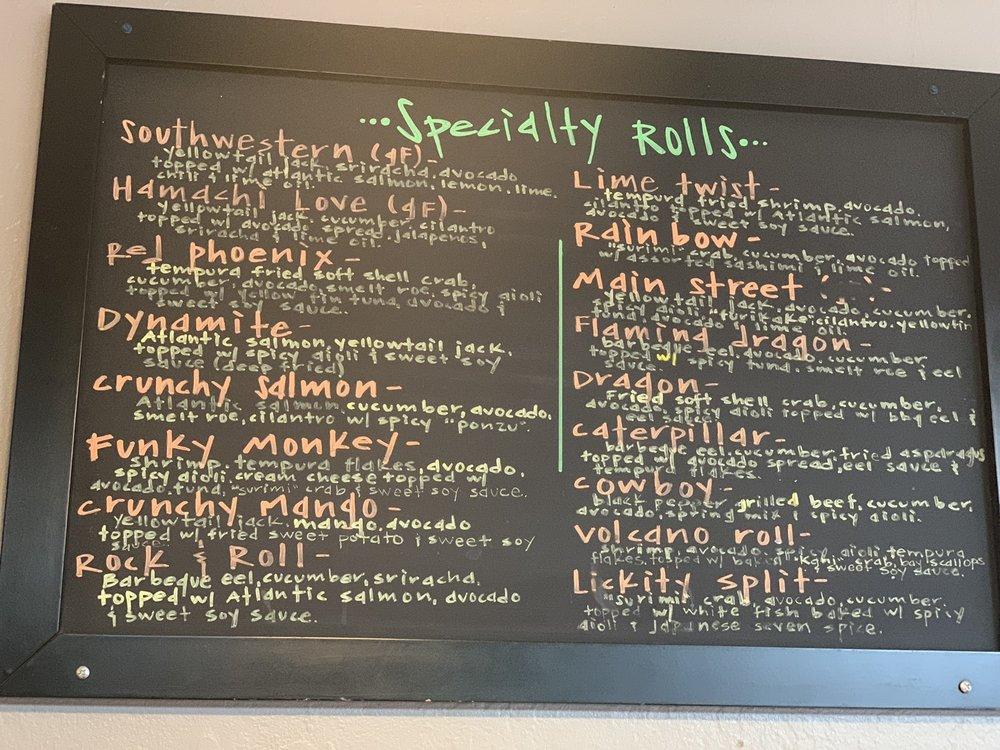 ...Specialty Rolls...
Southwestern (gF)-
yellowtail jack, sriracha, avocado
topped w/ atlantic salmon, lemon, lime,
chili & lime oil.
Hamachi Love (gF)-
yellowtail jack, cucumber, cilantro
topped w/ avocado spread, jalapeños,
sriracha & lime oil.
Red phoenix-
tempura fried soft shell crab,
cucumber, avocado, smelt roe, spicy aioli
topped w/ yellow fin tuna, avocado &
sweet soy sauce.
Dynamite-
Atlantic salmon, yellowtail jack,
topped w/ spicy aioli & sweet soy
sauce (deep fried)
crunchy salmon-
Atlantic salmon, cucumber, avocado,
smelt roe, cilantro w/ spicy "ponzu".
Funky Monkey-
shrimp, tempura flakes, avocado,
spicy aioli, cream cheese topped w/
avocado, tuna, "surimi" crab & sweet soy sauce.
crunchy Mango-
yellowtail jack, mango, avocado
topped w/ fried sweet potato & sweet soy
sauce.
Rock & Roll-
Barbeque eel, cucumber, sriracha,
topped w/ Atlantic salmon, avocado
& sweet soy sauce.
Lime twist-
tempura fried shrimp, avocado,
topped w/ Atlantic salmon,
sweet soy sauce.
Rainbow-
"surimi" crab, cucumber, avocado topped
w/ assorted sashimi & lime oil.
Main street
yellowtail jack, avocado, cucumber,
spicy aioli, "furikake", cilantro, yellowfin
tuna, avocado & lime oil.
Flaming dragon-
barbeque eel, avocado, cucumber
topped w/ spicy tuna, smelt roe & eel
sauce.
Dragon-
Fried soft shell crab, cucumber,
avocado, spicy aioli topped w/ bbq eel &
caterpillar-
barbeque eel, cucumber, fried asparagus
topped w/ avocado spread, eel sauce &
tempura flakes.
cowboy-
black pepper grilled beef, cucumber,
avocado, spring mix & spicy aioli.
volcano roll-
shrimp, avocado, spicy aioli, tempura
flakes, topped w/ baked "kani" crab, bay scallops
& sweet soy sauce.
Lickity split-
"surimi" crab, avocado, cucumber,
topped w/ white fish baked w/ spicy
aioli & japanese seven spice.